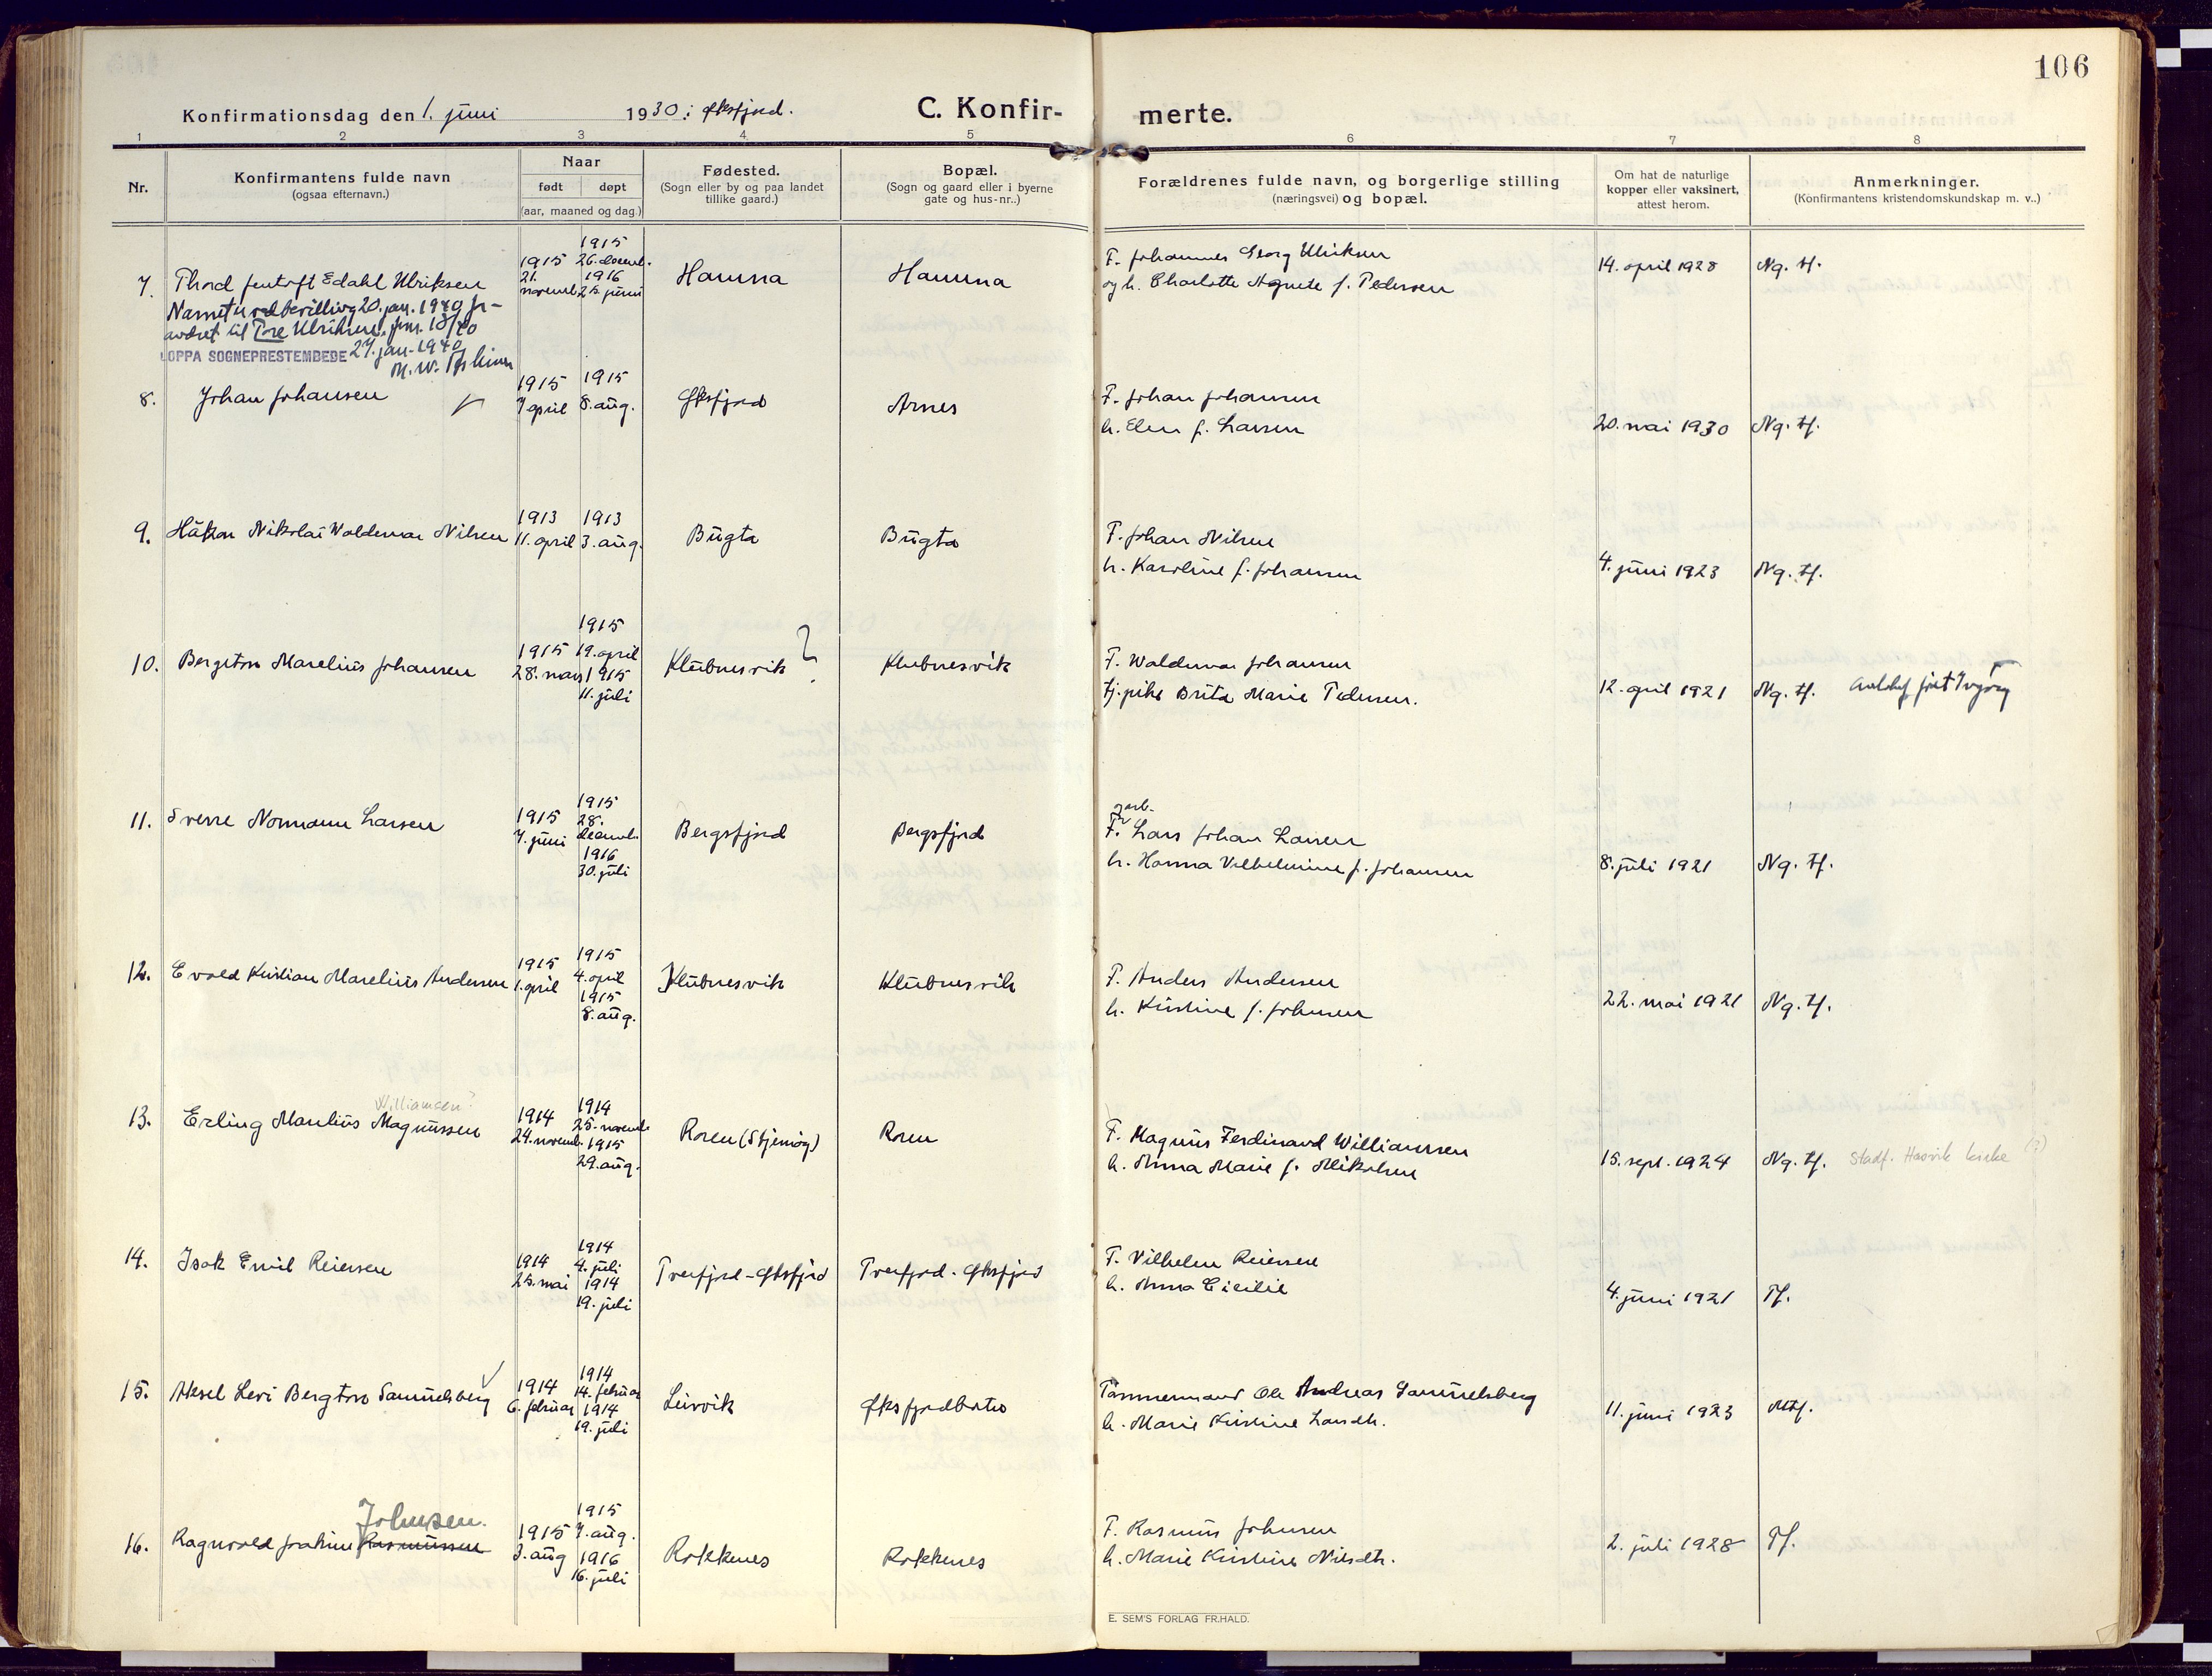 106
Konfirmationsdag den 1. juni 1930 i Øksfjord.
C. Konfir- merte.
1 2 3 4 5 6 7 8
Nr.
Konfirmantens fulde navn
(ogsaa efternavn.)
Naar
født døpt
(aar, maaned og dag.)
Fødested.
(Sogn eller by og paa landet
tillike gaard.)
Bopæl.
(Sogn og gaard eller i byerne
gate og hus-nr..)
Forældrenes fulde navn, og borgerlige stilling
(næringsvei) og bopæl.
Om hat de naturlige
kopper eller vaksinert,
attest herom.
Anmerkninger.
(Konfirmantens kristendomskundskap m. v..)
7. Thord Jentoft Edahl Ulriksen
Navnet ved bevilling 20. jan. 1940 for-
andret til Tore Ulriksen, jnr. 18/40
LOPPA SOGNEPRESTEMBEDE 27. jan. 1940
1915
21.
novemb.
1915
26. decemb.
1916
25. juni
Hamna
Hamna
F. Johannes Georg Ulriksen
og h. Charlotte Agnete f. Pedersen
14. april 1928
Ng. tf.
8. Johan Johansen
1915
7 april
1915
8. aug.
Øksfjord
Arnes
F. Johan Johansen
h. Elen f. Larsen
20. mai 1930
Ng. tf.
9. Håkon Nikolai Waldemar Nilsen
1913
11. april
1913
3. aug.
Bugta
Bugta
F. Johan Nilsen
h. Karoline f. Johansen
4. juni 1923
Ng. tf.
10. Bergiton Marelius Johansen
1915
28. mars
1915
19. april
1915
11. juli
Klubnesvik ?
Klubnesvik
F. Waldemar Johansen
tj.pike Brita Marie Pedersen.
12. april 1921
Ng. tf.
11. Sverre Normann Larsen
1915
7. juni
1915
28.
decemb.
1916
30. juli
Bergsfjord
Bergsfjord
F. Lars Johan Larsen
h. Hanna Vilhelmine f. Johansen
8. juli 1921
Ng. tf.
12. Evald Kristian Marelius Andersen
1915
1. april
1915
4. april
1915
8. aug.
Klubnesvik
Klubnesvik
F. Anders Andersen
h. Kristine f. Johnsen
22. mai 1921
Ng. tf.
Williamsen?
13. Erling Manlius Magnussen
1914
24. novemb.
1914
25. novemb.
1915
29. aug.
Roren (Stjernøy)
Roren
F. Magnus Ferdinand Williamsen
h. Anna Marie f. Mikalsen
15. sept. 1924
Ng. tf. Stadf. Hasvik kirke (?)
14. Isak Emil Reiersen
1914
25. mai
1914
4. juli
1914
19. juli
Tverfjord-Øksfjord
Tverfjord-Øksfjord
F. Vilhelm Reiersen
h. Anna Cicilie
4. juni 1921
Tf.
15. Aksel Levi Bergton Samuelsberg
1914
6. februar
1914
14. februar
1914
19. juli
Leirvik
Øksfjordbotn
Tømmermand Ole Andreas Samuelsberg
h. Marie Kristine Larsdtr.
11. juni 1923
Mtf.
Johnsen.
16. Ragnvald Joakim Rasmussen
1915
3. aug
1915
7. aug.
1916
16. juli
Rokkenes
Rokkenes
F. Rasmus Johnsen
h. Marie Kristine Nilsdtr.
2. juli 1928
Tf.
E. SEM'S FORLAG FR.HALD.